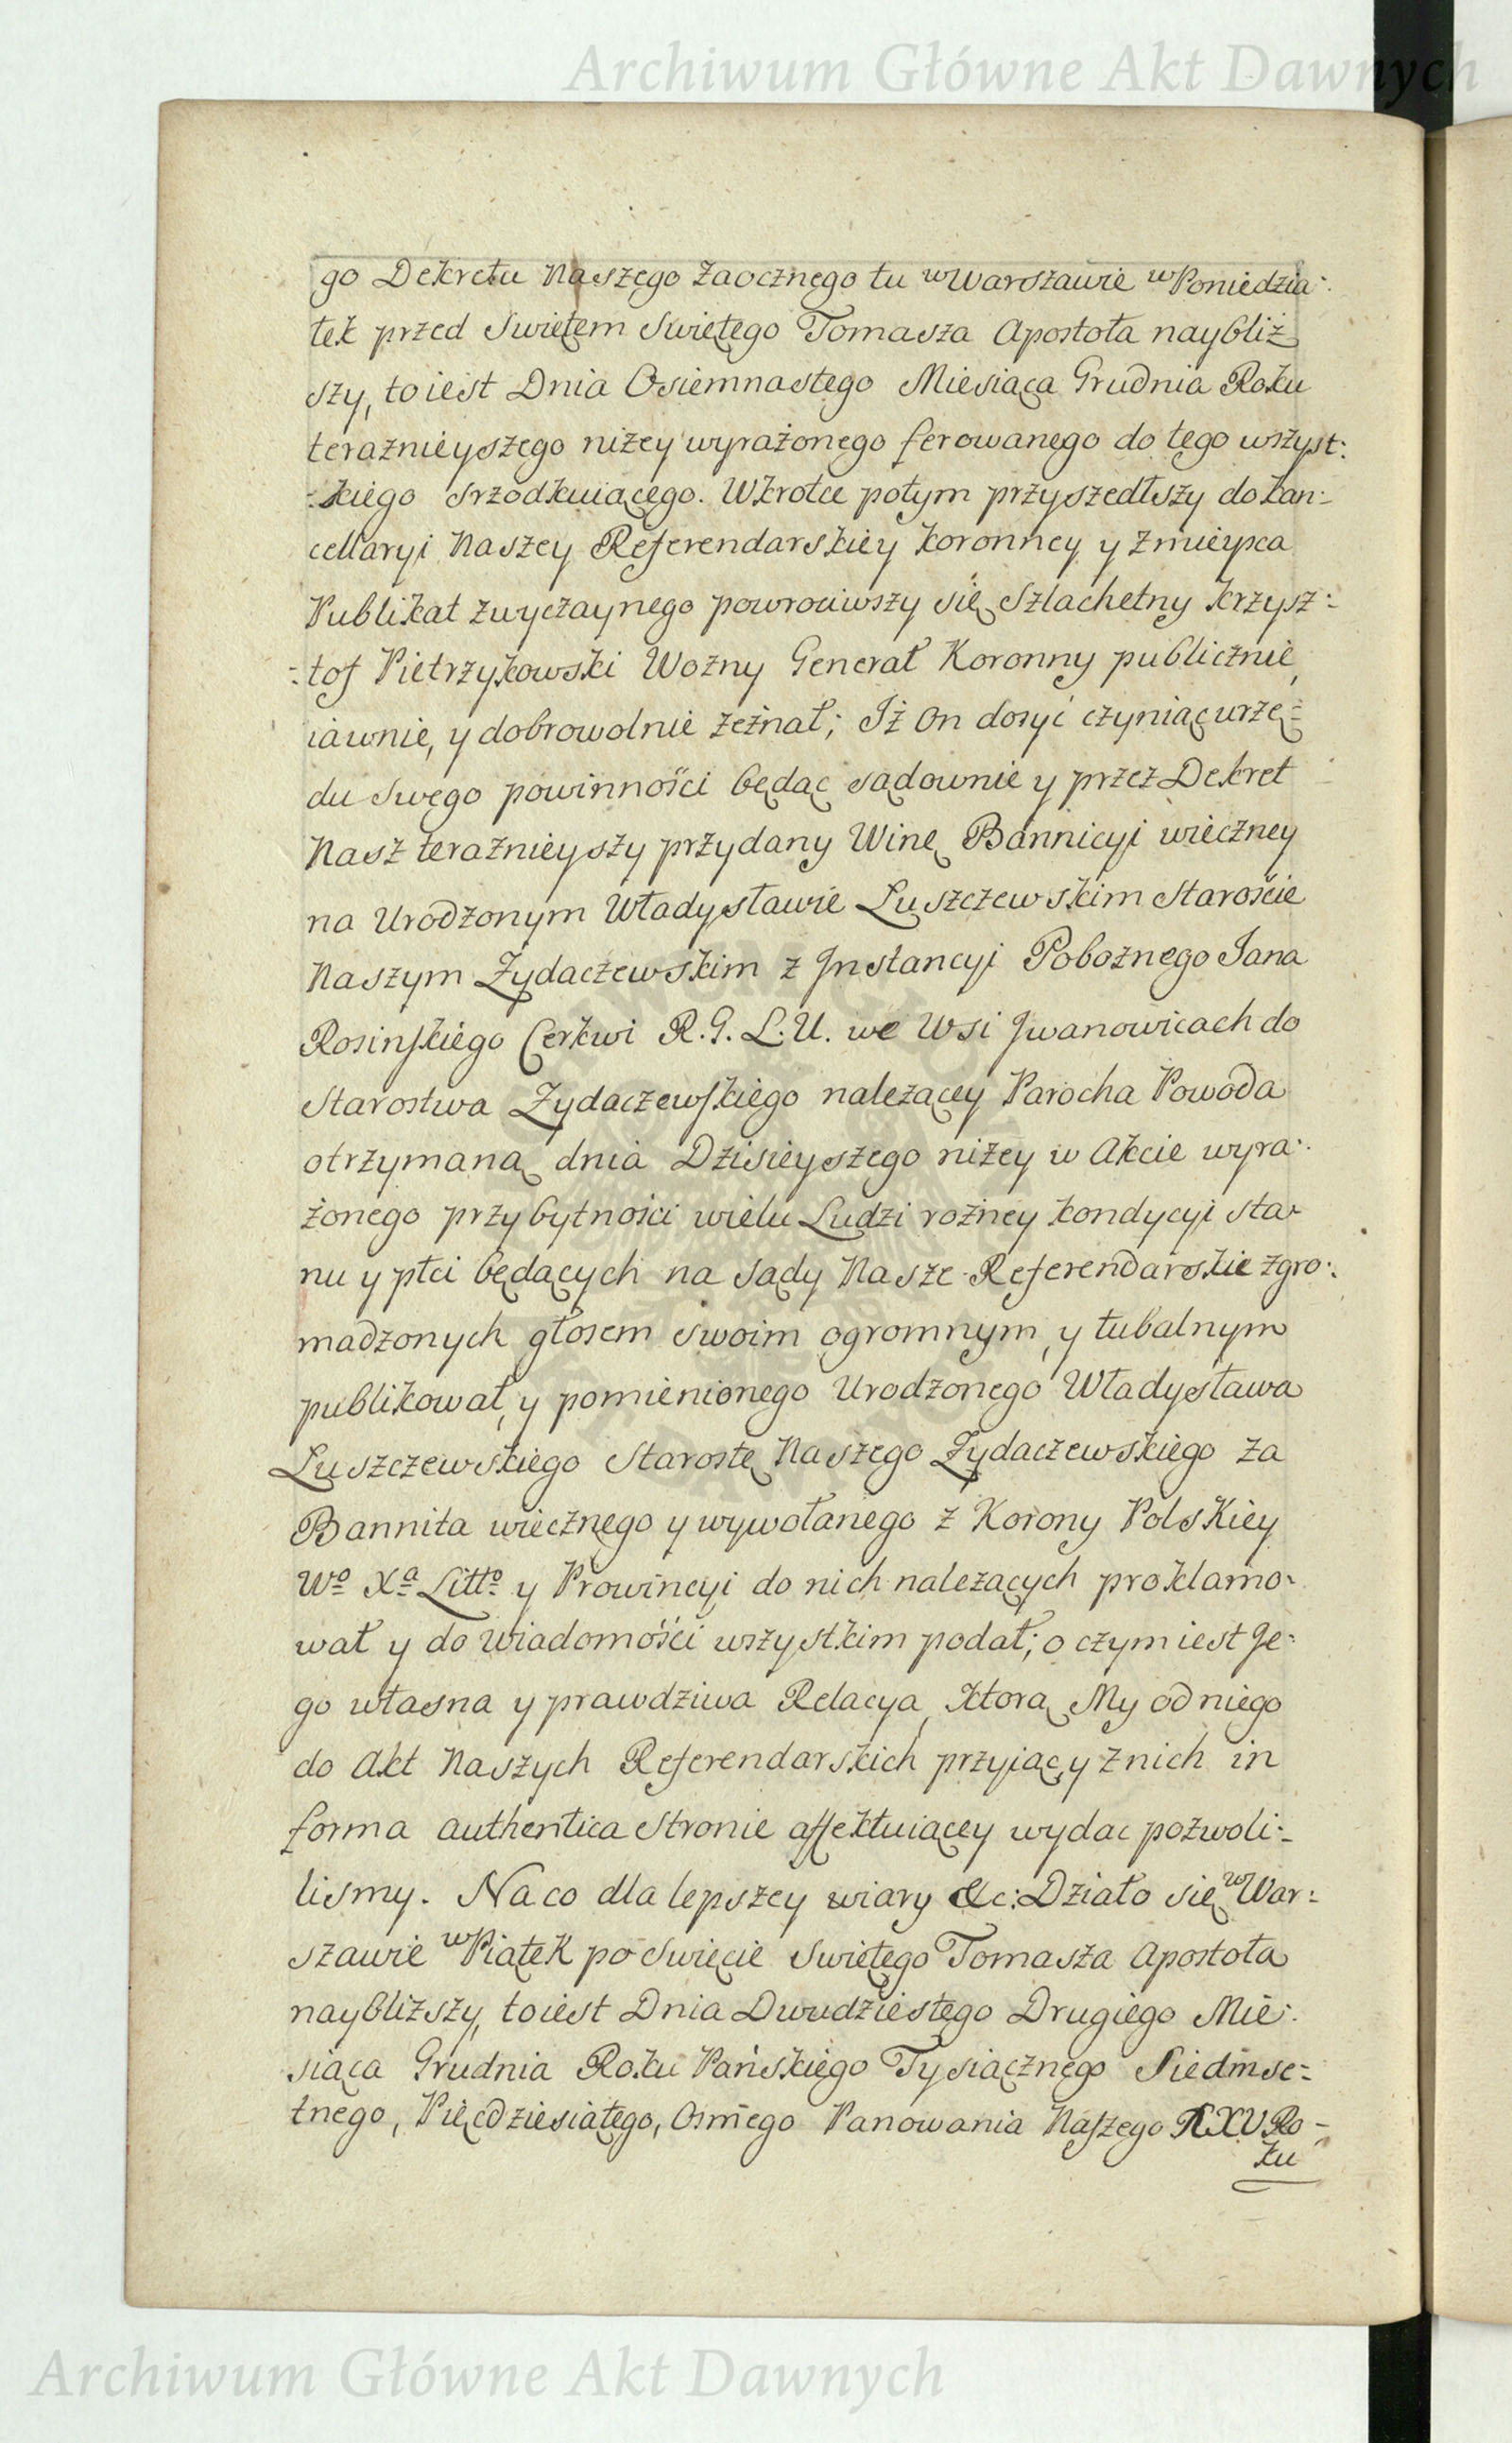 Archiwum Główne Akt Dawnych
go Dekretu Naszego Zaocznego tu w Warszawie w Poniedzia:
łek przed Swiętem Swiętego Tomasza Apostoła naybliż
szy, to iest Dnia Osiemnastego Miesiąca Grudnia Roku
teraznieyszego niżey wyrażonego ferowanego do tego wszyst:
:kiego srzodkuiącego. Wkrotce potym przyszedłszy do Kan:
cellaryi Naszey Referendarskiey Koronney y z mieysca
Publikat zwyczaynego powrociwszy się Szlachetny Krzysz:
:tof Pietrzykowski Wozny Generał Koronny publicznie,
iawnie, y dobrowolnie zeznał; Iż on dosyć czyniąc urzę:
du swego powinności będąc sądownie y przez Dekret
Nasz teraznieyszy przydany Winę Bannicyi wieczney
na Urodzonym Władysławie Luszczewskim Staroście
Naszym Zydaczewskim z Instancyi Pobożnego Jana
Rosinskiego Cerkwi R. G. L. U. we Wsi Iwanowicach do
Starostwa Zydaczewskiego należącey Parocha Powoda
otrzymaną dnia Dzisieyszego niżey w Akcie wyra:
żonego przy bytności wielu Ludzi rożney kondycyi sta:
nu y płci będących na Sądy Nasze Referendarskie zgro:
madzonych głosem swoim ogromnym, y tubalnym
publikował, y pomienionego Urodzonego Władysława
Luszczewskiego Starostę Naszego Zydaczewskiego za
Bannita wiecznego y wywołanego z Korony Polskiey
Wo Xa Litto y Prowincyi do nich należących proklamo:
wał y do wiadomości wszystkim podał; o czym iest Je:
go własna y prawdziwa Relacya, Ktorą My od niego
do Akt Naszych Referendarskich przyiąc, y z nich in
forma authentica Stronie affektuiącey wydac pozwoli:
lismy. Na co dla lepszey wiary &c: Działo się w War:
szawie w Piątek po Swięcie Swiętego Tomasza Apostoła
naybliższy, to iest Dnia Dwudziestego Drugiego Mie:
siąca Grudnia Roku Pańskiego Tysiącznego Siedmse:
tnego, Pięcdziesiątego, Osmego Panowania Naszego XXV Ro:
ku
Archiwum Główne Akt Dawnych